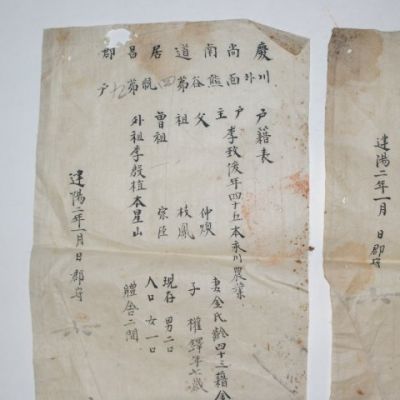 慶尚南道居昌郡
川外面熊谷第四統第九戶
戶籍表
戶主 李致俊年四十五本永川農業
妻金氏齡四十三籍金
父 仲煥
祖 枝鳳
子 權鐸年七歲
曾祖 宗臣
現存 男二口
人口 女一口
外祖李毅植本星山
舍二間
建陽二年一月 日郡守
建陽二年一月 日郡守